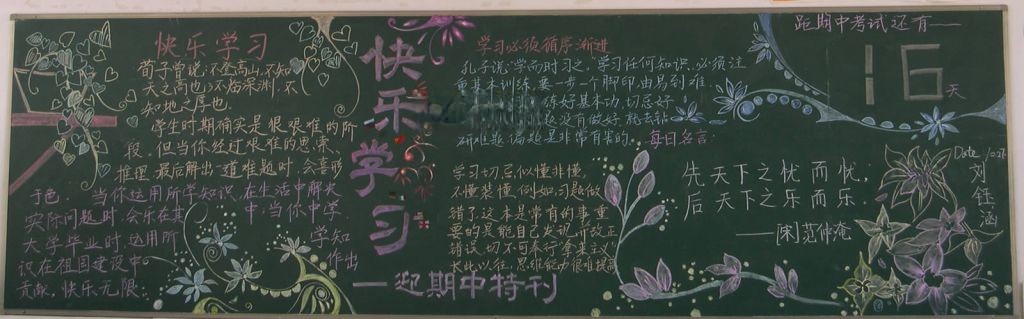 快乐学习
荀子曾说:不登高山,不知
天之高也;不临深渊,不
知地之厚也.
学生时期确实是很艰难的阶
段,但当你经过艰难的思索、
推理,最后解出一道难题时,会喜形
于色.当你运用所学知识,在生活中解决
实际问题时,会乐在其中,当你中学、
大学毕业时,运用所学知
识,在祖国建设中作出
贡献,快乐无限:
快乐学习
—迎期中特刊
学习必须循序渐进
孔子说"学而时习之",学习任何知识,必须注
重基本训练,要一步一个脚印,由易到难,
练好基本功,切忌好
没有做好,就去钻
研难题,偏题是非常有害的。
学习切忌似懂非懂,
不懂装懂,例如,习题做
错了,这本是常有的事,重
要的是能自己发现,并改正
错误,切不可奉行"拿来主义"
长此以往,思维能力很难提高
每日名言:
先天下之忧而忧,
后天下之乐而乐.
——[宋]范仲淹
距期中考试还有——
16天
Date:
刘钰涵